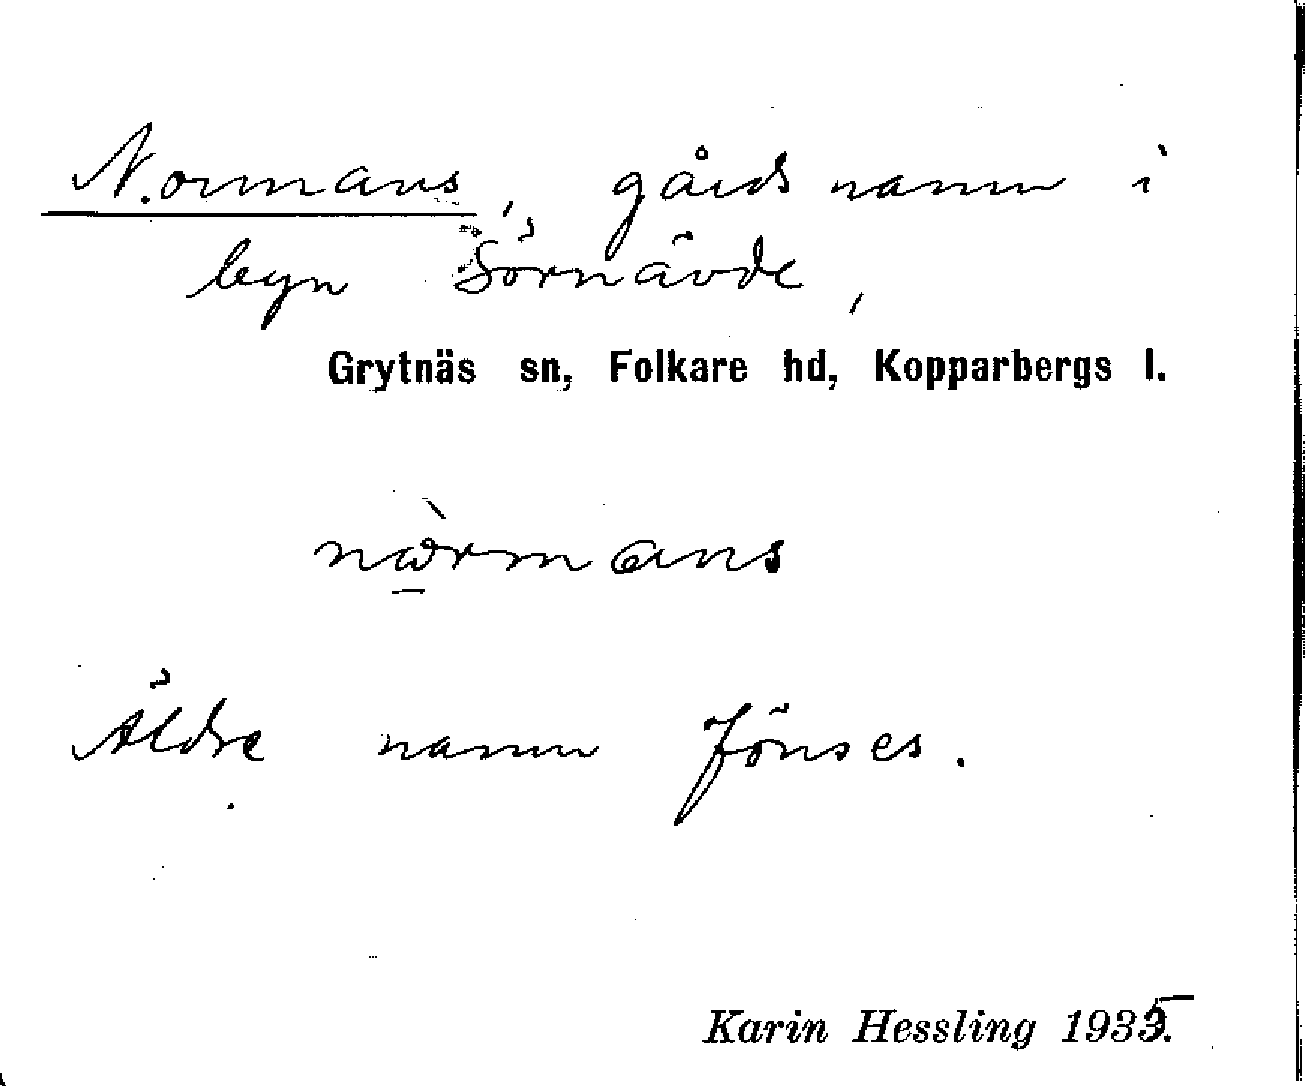 Normans, gårdsnamn i
byn Sörnävde,
Grytnäs sn, Folkare hd, Kopparbergs l.
Äldre namn Jönses.
Karin Hessling 1935.